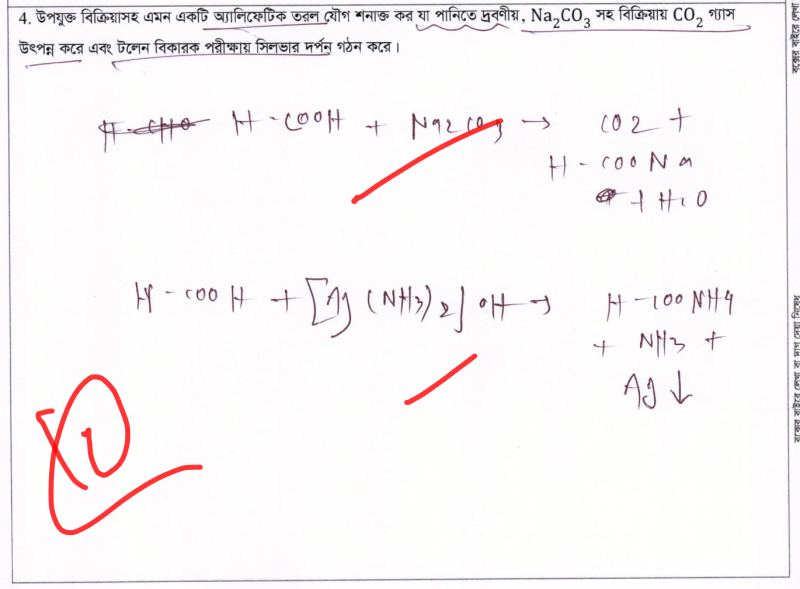 4. উপযুক্ত বিক্রিয়াসহ এমন একটি অ্যালিফেটিক তরল যৌগ শনাক্ত কর যা পানিতে দ্রবণীয়, Na₂CO₃ সহ বিক্রিয়ায় CO₂ গ্যাস
উৎপন্ন করে এবং টলেন বিকারক পরীক্ষায় সিলভার দর্পন গঠন করে।
H-CHO H-COOH + Na2CO3 → CO2 +
H-COONa
+ H2O
H-COOH + [Ag(NH3)2]OH → H-COONH4
+ NH3 +
Ag ↓
1